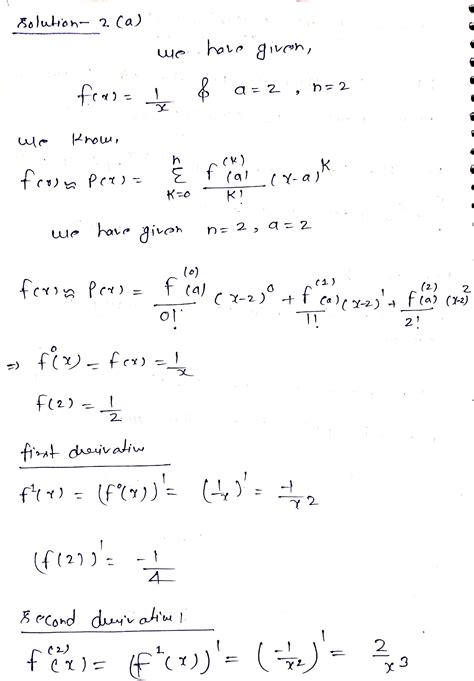 Solution- 2 (a)
we have given,
f(x) = 1/x & a = 2 , n = 2
we know,
f(x) ≈ P(x) = Σ_{K=0}^{n} f^{(K)}(a)/K! (x-a)^K
we have given n=2, a=2
f(x) ≈ P(x) = f^{(0)}(a)/0! (x-2)^0 + f^{(1)}(a)/1! (x-2)^1 + f^{(2)}(a)/2! (x-2)^2
⇒ f^0(x) = f(x) = 1/x
f(2) = 1/2
first derivative
f^1(x) = (f^0(x))' = (1/x)' = -1/x^2
(f(2))' = -1/4
Second derivative!
f^{(2)}(x) = (f^1(x))' = (-1/x^2)' = 2/x^3